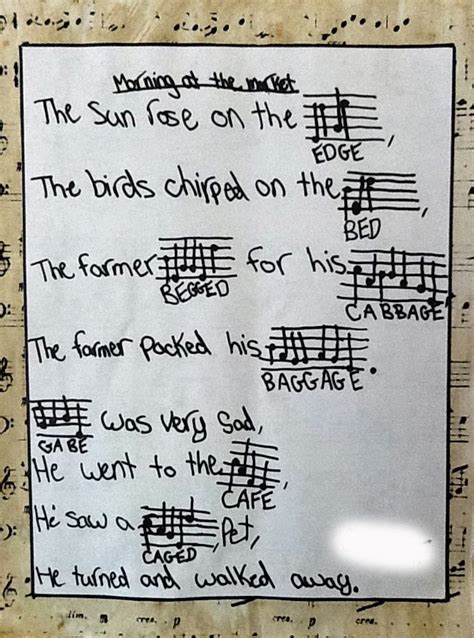 Morning at the market
The sun rose on the EDGE,
The birds chirped on the BED,
The farmer BEGGED for his CABBAGE,
The farmer packed his BAGGAGE.
GABE was very sad,
He went to the CAFE,
He saw a CAGED, Pet,
He turned and walked away.
dim. p cres. p cres. p